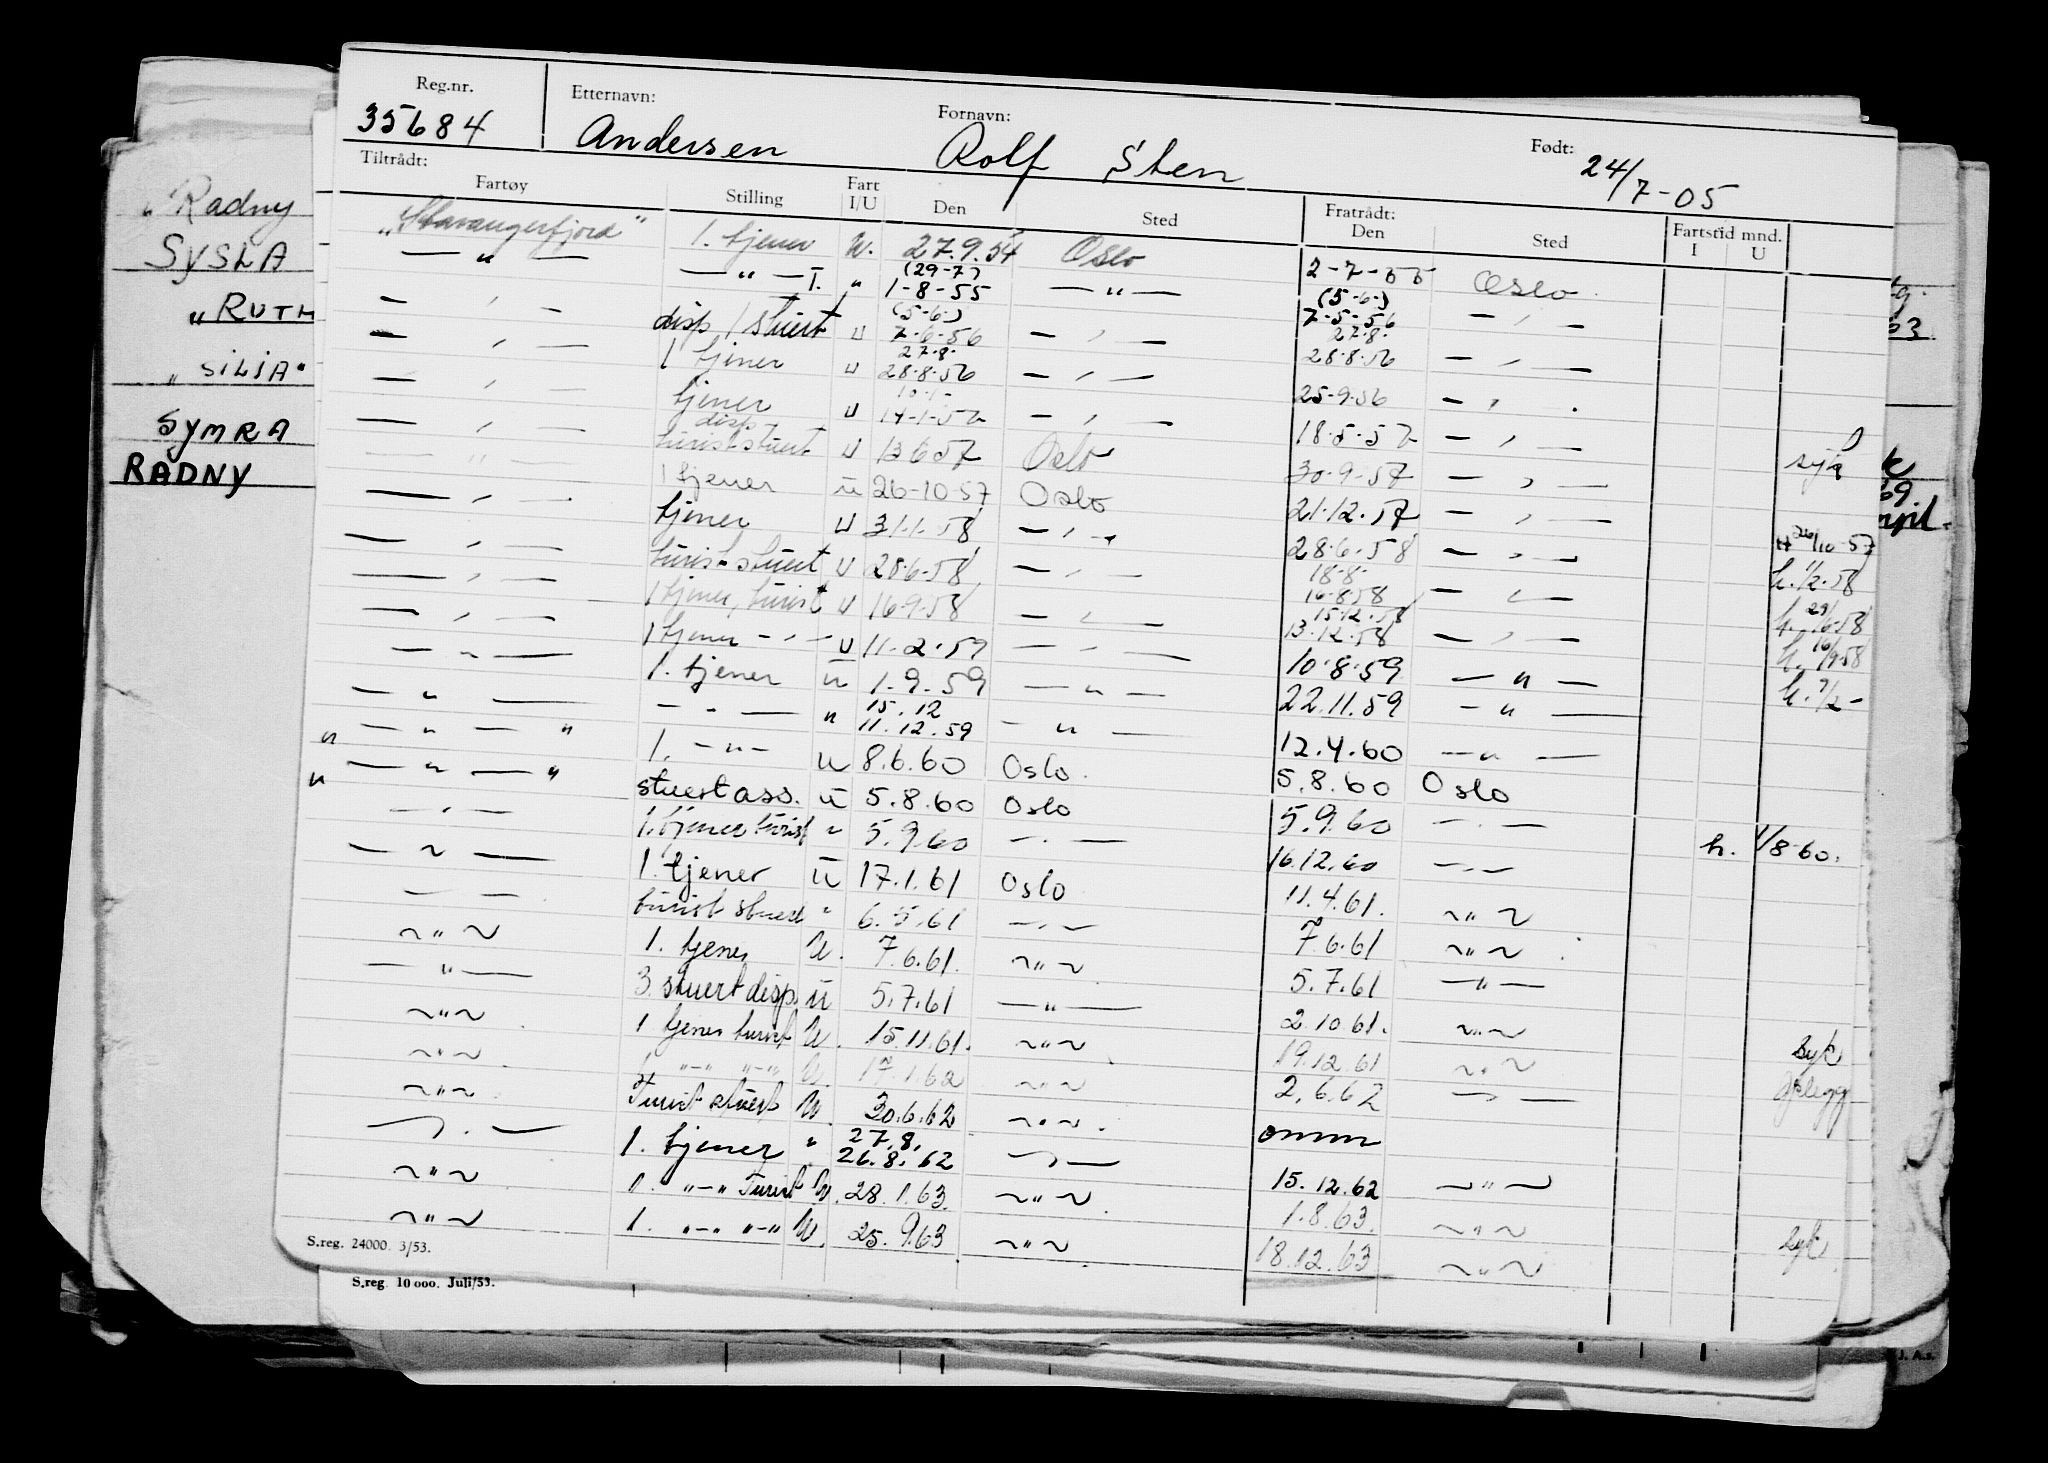 Reg.nr. Etternavn: Fornavn: Født:
35684 Andersen Rolf Sten 24/7-05
Tiltrådt: Fratrådt: Fartstid mnd.
Fartøy Stilling Fart I/U Den Sted Den Sted I U
"Stavangerfjord" 1. tjener U. 27.9.54 Oslo 2-7-55 Oslo
— " — — " — I. " (29-7) 1-8-55 — " — (5-6-) 7-5-56 — " —
— " — disp / stuert U (5-6-) 7-6-56 — " — 27.8. 28.8.56 — " —
— " — 1 tjener U 27.8. 28.8.56 — " — 25-9.56 — " —
— " — tjener U 14-1-57 — " — 18.5.57 — " — syk
— " — disp turiststuert U 13 6 57 Oslo 30-9-57 — " —
— " — 1 tjener U 26-10-57 Oslo 21.12.57 — " — 26/10-57
— " — tjener U 31.1.58 — " — 28.6.58 — " — h. 1/2-58
— " — turist stuert U 28.6.58 — " — 18.8. 16.8.58 — " — h. 29/6-58
— " — 1 tjener, turist U 16.9.58 — " — 15.12.58 13.12.58 — " — h. 16/9-58
— " — 1 tjener — " — U 11.2.59 — " — 10.8.59 — " — h. 7/2-
— " — 1. tjener U 1.9.59 — " — 22.11.59 — " —
— " — — " — " 15.12 11.12.59 — " — 12.4.60 — " —
" — " — " 1. — " — U 8.6.60 Oslo. 5.8.60 Oslo
" — " — " stuert ass. U 5.8.60 Oslo 5.9.60 — " — h. 1/8-60.
— " — 1. tjener turist " 5.9.60 — " — 16.12.60 — " —
— " — 1. tjener U 17.1.61 Oslo 11.4.61. — " —
— " — turist stuert " 6.5.61 — " — 7.6.61 — " —
— " — 1. tjener U. 7.6.61. — " — 5.7.61 — " —
— " — 3. stuert disp. U 5.7.61 — " — 2.10.61. — " — syk
— " — 1 tjener turist U. 15.11.61. — " — 19.12.61 — " —
— " — 1 " — " " — " U. 17.1.62 — " — 2.6.62 — " —
— " — Turist stuert U. 30.6.62 — " — omm
— " — 1. tjener " 27.8. 26.8.62 — " — 15.12.62 — " —
— " — 1. " — " Turist U. 28.1.63. — " — 1.8.63. — " — syk
— " — 1. " — " " — " U. 25.9.63 — " — 18.12.63 — " —
S.reg. 24000. 3/53.
S.reg. 10 000. Juli/53.
"Radny
SYSLA
"RUTH
"SILJA"
SYMRA
RADNY